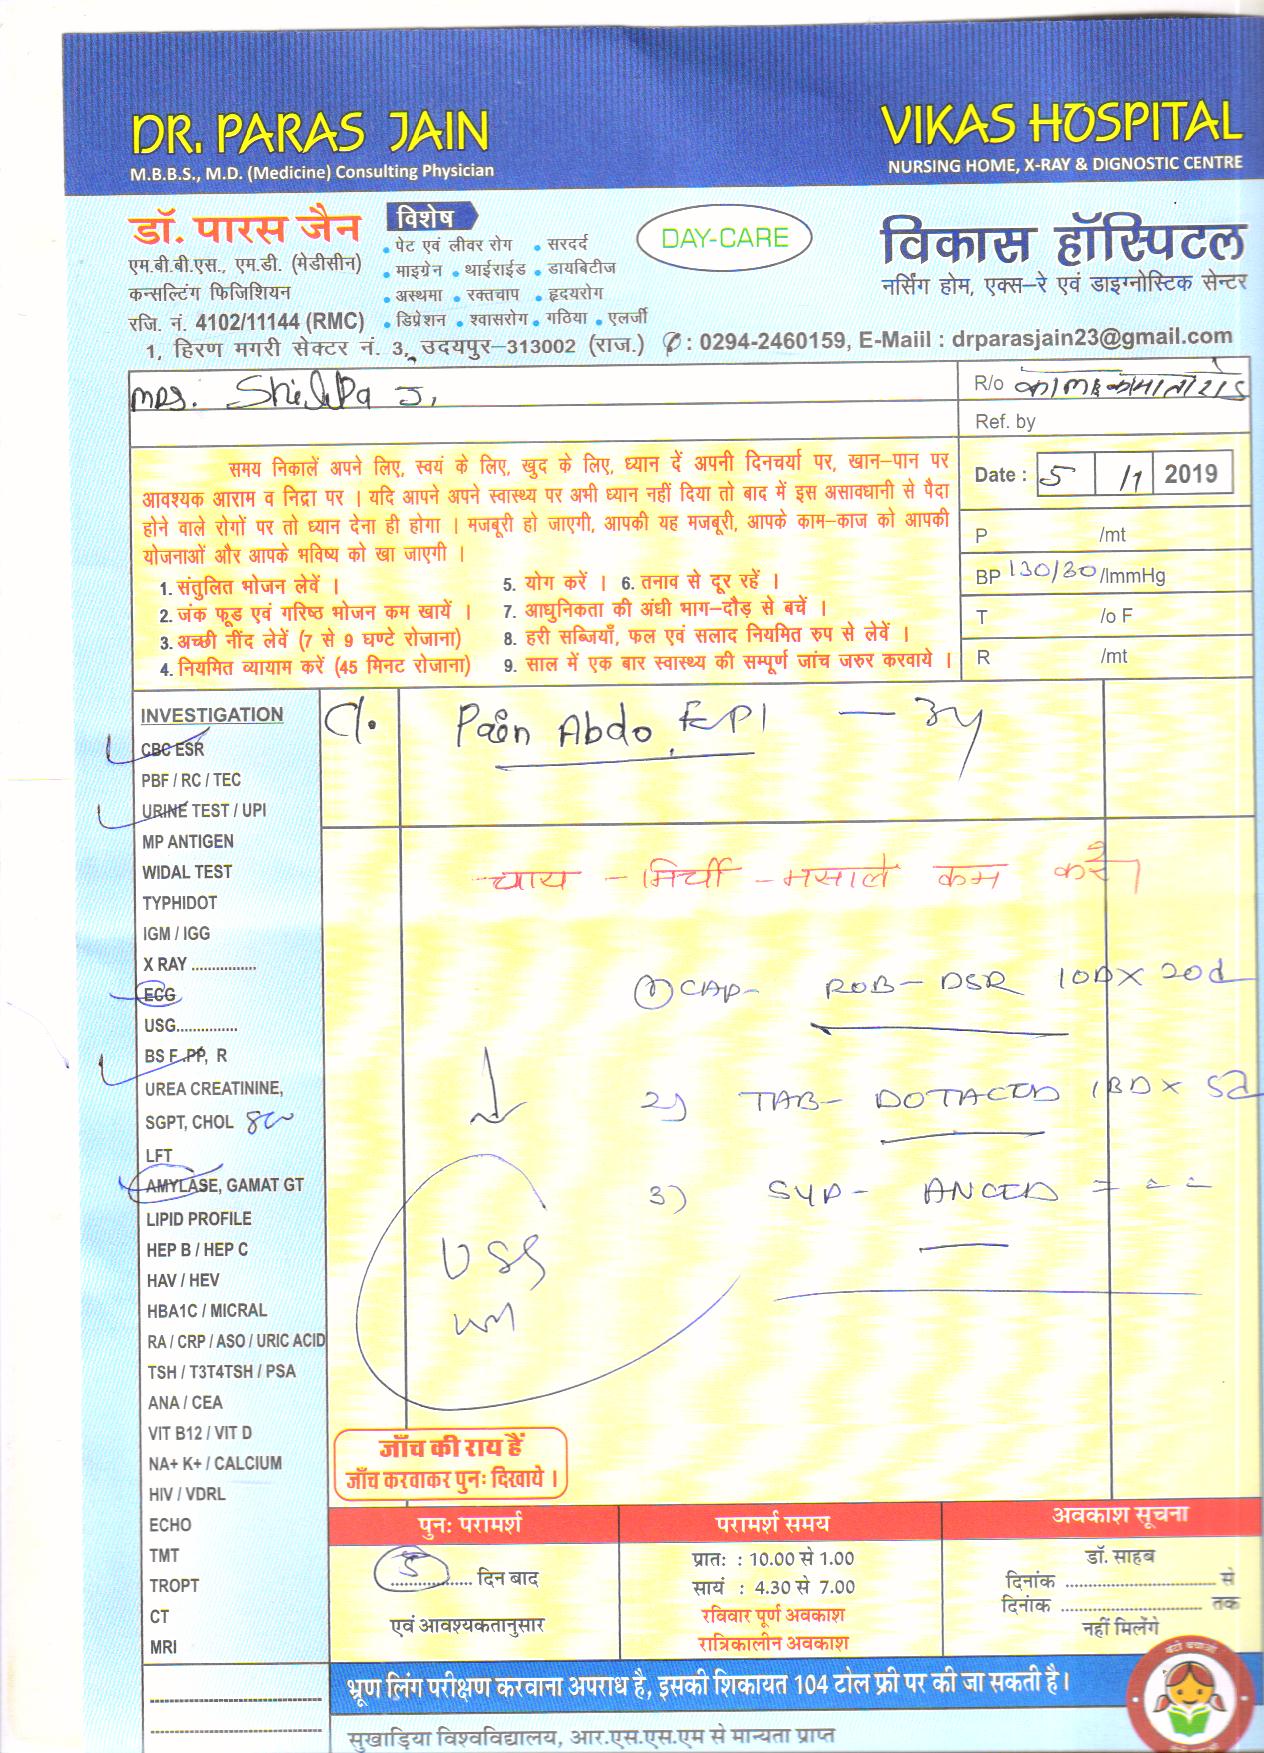 DR. PARAS JAIN
M.B.B.S., M.D. (Medicine) Consulting Physician
VIKAS HOSPITAL
NURSING HOME, X-RAY & DIGNOSTIC CENTRE
डॉ. पारस जैन
एम.बी.बी.एस., एम.डी. (मेडीसीन)
कन्सल्टिंग फिजिशियन
रजि. नं. 4102/11144 (RMC)
विशेष
• पेट एवं लीवर रोग • सरदर्द
• माइग्रेन • थाईराईड • डायबिटीज
• अस्थमा • रक्तचाप • हृदयरोग
• डिप्रेशन • श्वासरोग • गठिया • एलर्जी
DAY-CARE
विकास हॉस्पिटल
नर्सिंग होम, एक्स-रे एवं डाइग्नोस्टिक सेन्टर
1, हिरण मगरी सेक्टर नं. 3, उदयपुर-313002 (राज.) : 0294-2460159, E-Maiil : drparasjain23@gmail.com
Mrs. Shilpa J.
R/o
Ref. by
Date : 5 /1 2019
P /mt
BP 130/80 /ImmHg
T /o F
R /mt
समय निकालें अपने लिए, स्वयं के लिए, खुद के लिए, ध्यान दें अपनी दिनचर्या पर, खान-पान पर
आवश्यक आराम व निद्रा पर । यदि आपने अपने स्वास्थ्य पर अभी ध्यान नहीं दिया तो बाद में इस असावधानी से पैदा
होने वाले रोगों पर तो ध्यान देना ही होगा । मजबूरी हो जाएगी, आपकी यह मजबूरी, आपके काम-काज को आपकी
योजनाओं और आपके भविष्य को खा जाएगी ।
1. संतुलित भोजन लेवें ।
2. जंक फूड एवं गरिष्ठ भोजन कम खायें ।
3. अच्छी नींद लेवें (7 से 9 घण्टे रोजाना)
4. नियमित व्यायाम करें (45 मिनट रोजाना)
5. योग करें । 6. तनाव से दूर रहें ।
7. आधुनिकता की अंधी भाग-दौड़ से बचें ।
8. हरी सब्जियाँ, फल एवं सलाद नियमित रुप से लेवें ।
9. साल में एक बार स्वास्थ्य की सम्पूर्ण जांच जरुर करवाये ।
INVESTIGATION
CBC ESR
PBF / RC / TEC
URINE TEST / UPI
MP ANTIGEN
WIDAL TEST
TYPHIDOT
IGM / IGG
X RAY ...............
ECG
USG...............
BS F .PP, R
UREA CREATININE,
SGPT, CHOL
LFT
AMYLASE, GAMAT GT
LIPID PROFILE
HEP B / HEP C
HAV / HEV
HBA1C / MICRAL
RA / CRP / ASO / URIC ACID
TSH / T3T4TSH / PSA
ANA / CEA
VIT B12 / VIT D
NA+ K+ / CALCIUM
HIV / VDRL
ECHO
TMT
TROPT
CT
MRI
C/. Pain Abdo. EPI — 3y
चाय - मिर्ची - मसाले कम करें।
① CAP- ROB-DSR 1OD X 20d
2) TAB- DOTACID 1BD X 5d
3) SYP- ANCID
USG
जाँच की राय हैं
जाँच करवाकर पुनः दिखाये ।
पुनः परामर्श
5 ................. दिन बाद
एवं आवश्यकतानुसार
परामर्श समय
प्रातः : 10.00 से 1.00
सायं : 4.30 से 7.00
रविवार पूर्ण अवकाश
रात्रिकालीन अवकाश
अवकाश सूचना
डॉ. साहब
दिनांक ............................... से
दिनांक ............................... तक
नहीं मिलेंगे
भ्रूण लिंग परीक्षण करवाना अपराध है, इसकी शिकायत 104 टोल फ्री पर की जा सकती है।
सुखाड़िया विश्वविद्यालय, आर.एस.एस.एम से मान्यता प्राप्त
बेटी बचाओ